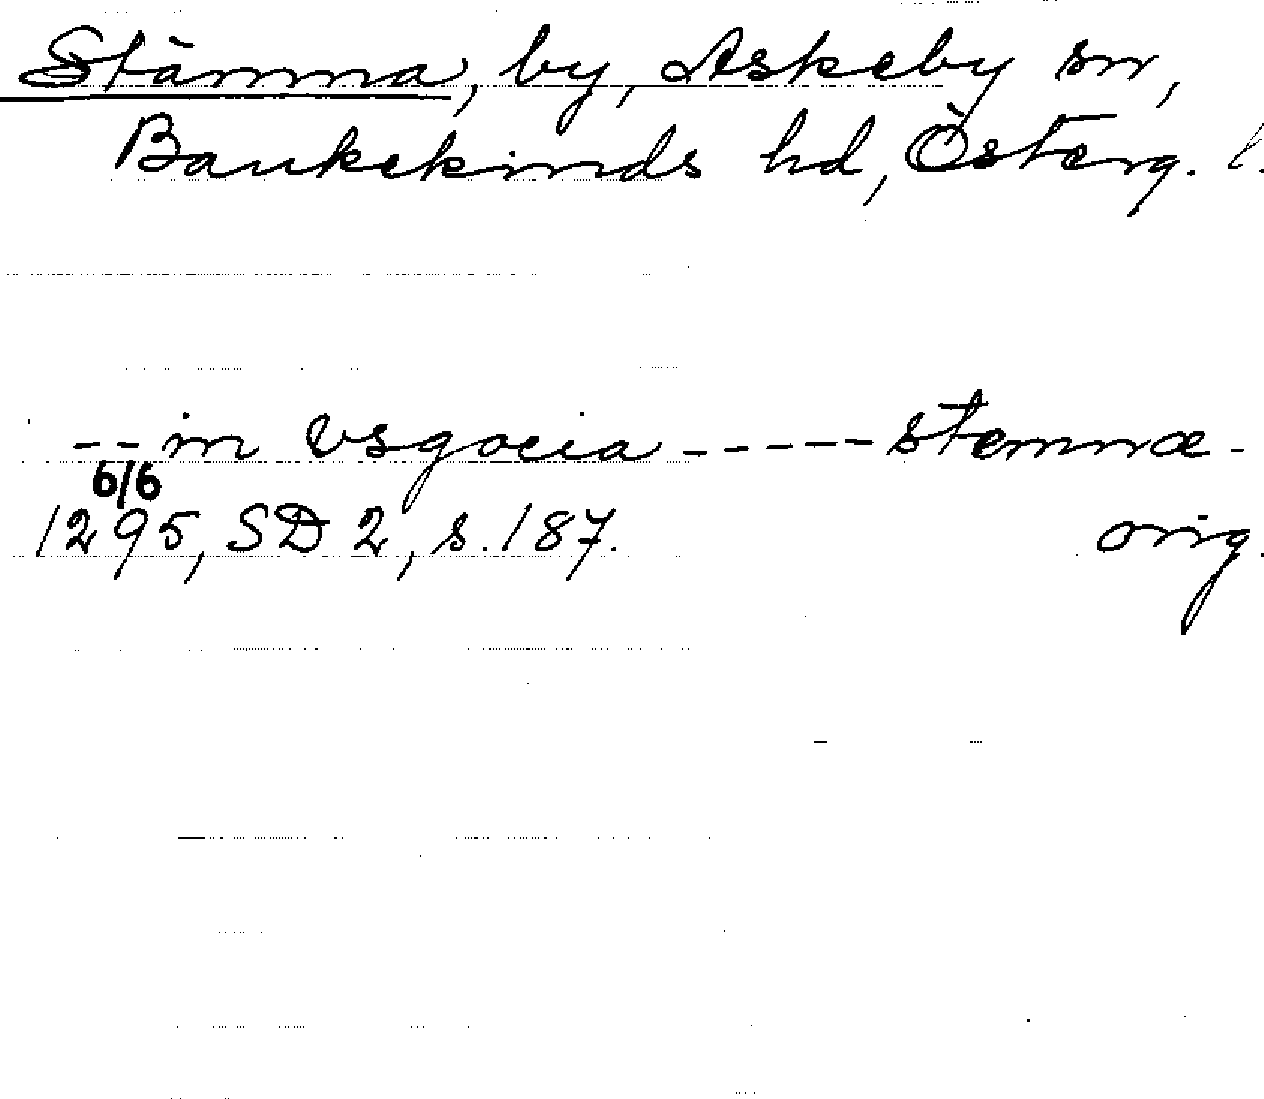 Stämma, by, Askeby sn,
Bankekinds hd, Österg. l.
-- in vsgocia ----- stemnæ -
6/6
1295, SD 2, s. 187. orig.